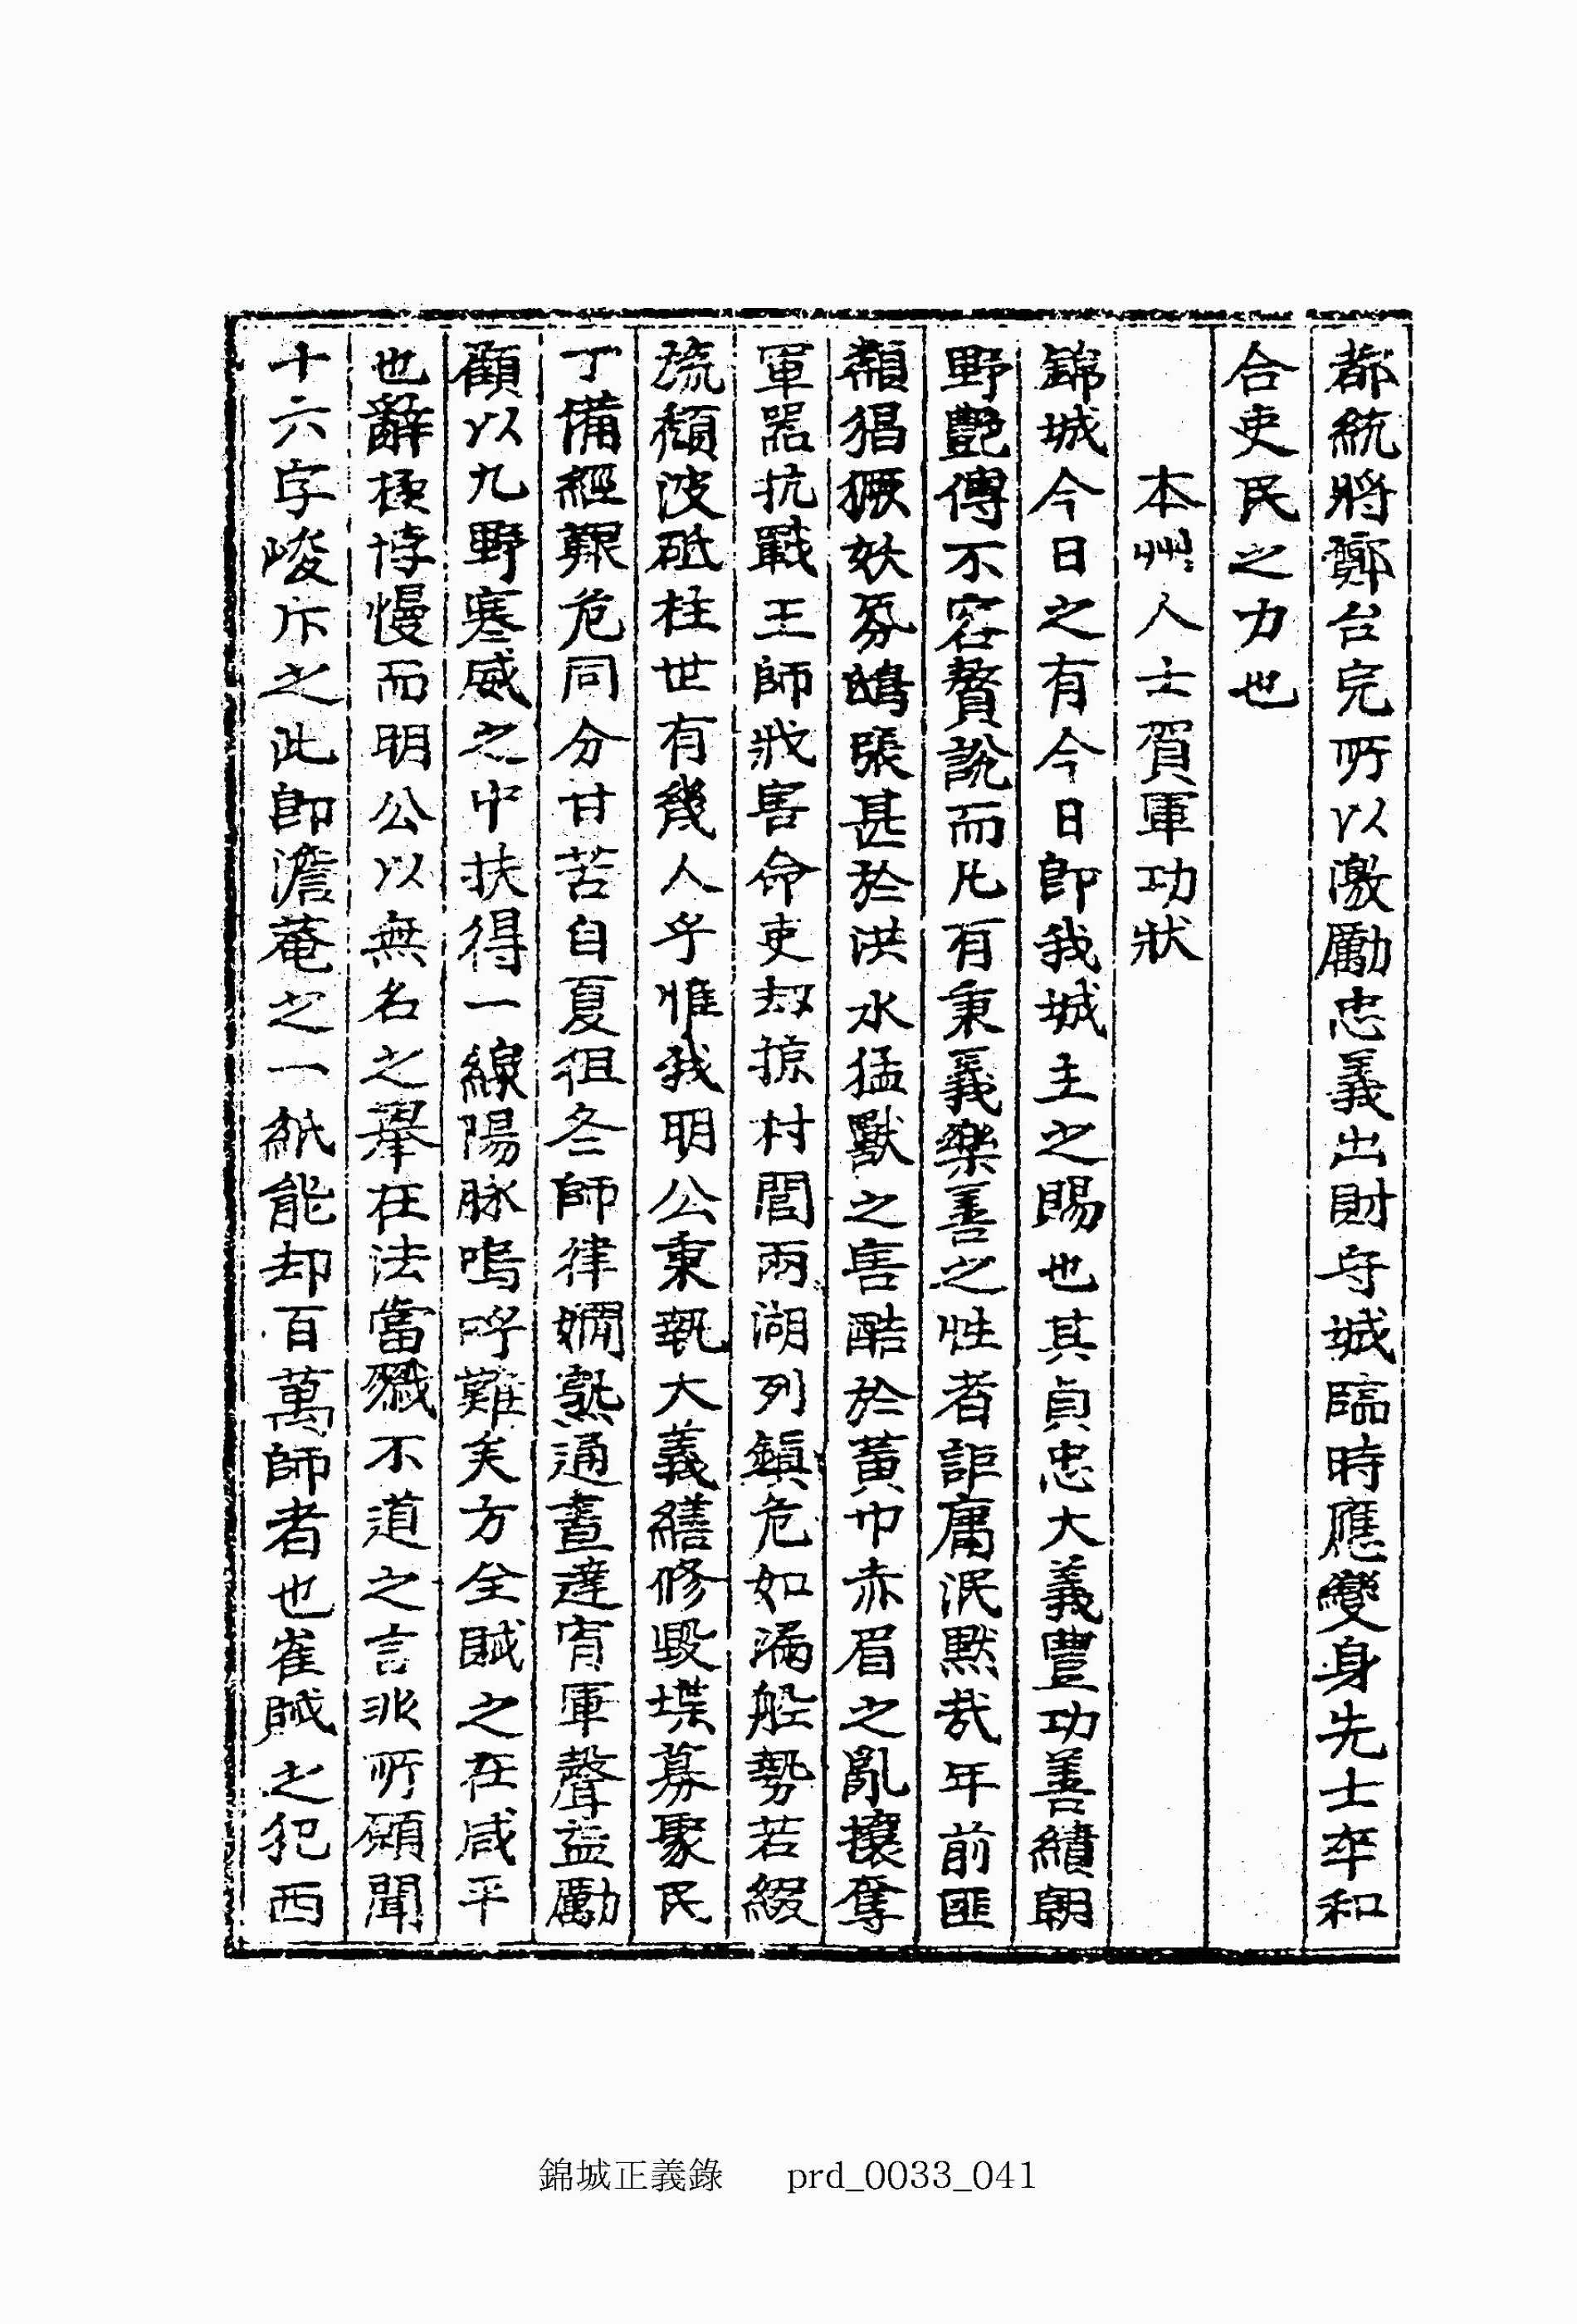 都統將鄭台完所以激勵忠義出財守城臨時應變身先士卒和
合吏民之力也
本州人士賀軍功狀
錦城今日之有今日卽我城主之賜也其貞忠大義豊功善績朝
野艶傳不容贅說而凡有秉義樂善之性者詎庸泯黙哉年前匪
類猖獗妖氛鴟張甚於洪水猛獸之害酷於黃巾赤眉之亂攘奪
軍器抗戰王師戕害命吏刼掠村閭兩湖列鎭危如漏船勢若綴
旒頹波砥柱世有幾人乎惟我明公秉執大義繕修毁堞募聚民
丁備經艱危同分甘苦自夏徂冬師律嫺熟通晝達宵軍聲益勵
顧以九野寒威之中扶得一線陽脉嗚呼難矣方全賊之在咸平
也辭極悖慢而明公以無名之擧在法當殲不道之言非所願聞
十六字峻斥之此卽澹菴之一紙能却百萬師者也崔賊之犯西
錦城正義錄 prd_0033_041